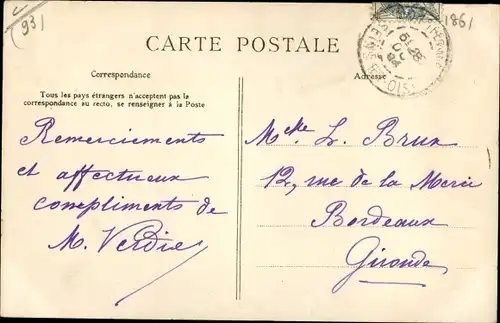 (93)
1861
CARTE POSTALE
Correspondance
Adresse
Tous les pays étrangers n'acceptent pas la
correspondance au recto, se renseigner à la Poste
Remerciements
et affectueux
compliments de
M. Verdie
Melle L. Brun
12, rue de la Merci
Bordeaux
Gironde